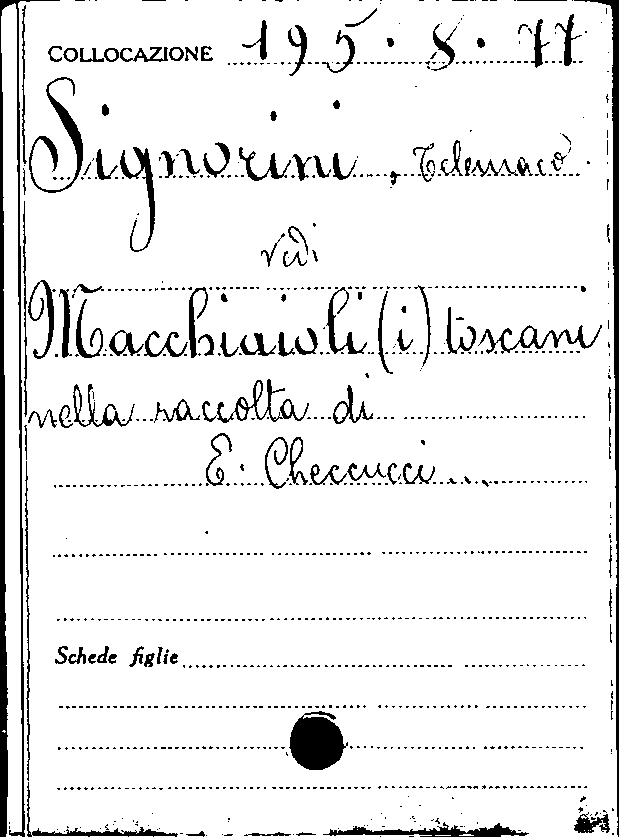 COLLOCAZIONE 195.8.77
Signorini, Telemaco.
vedi
Macchiaioli (i) toscani
nella raccolta di
E. Checcucci...
Schede figlie